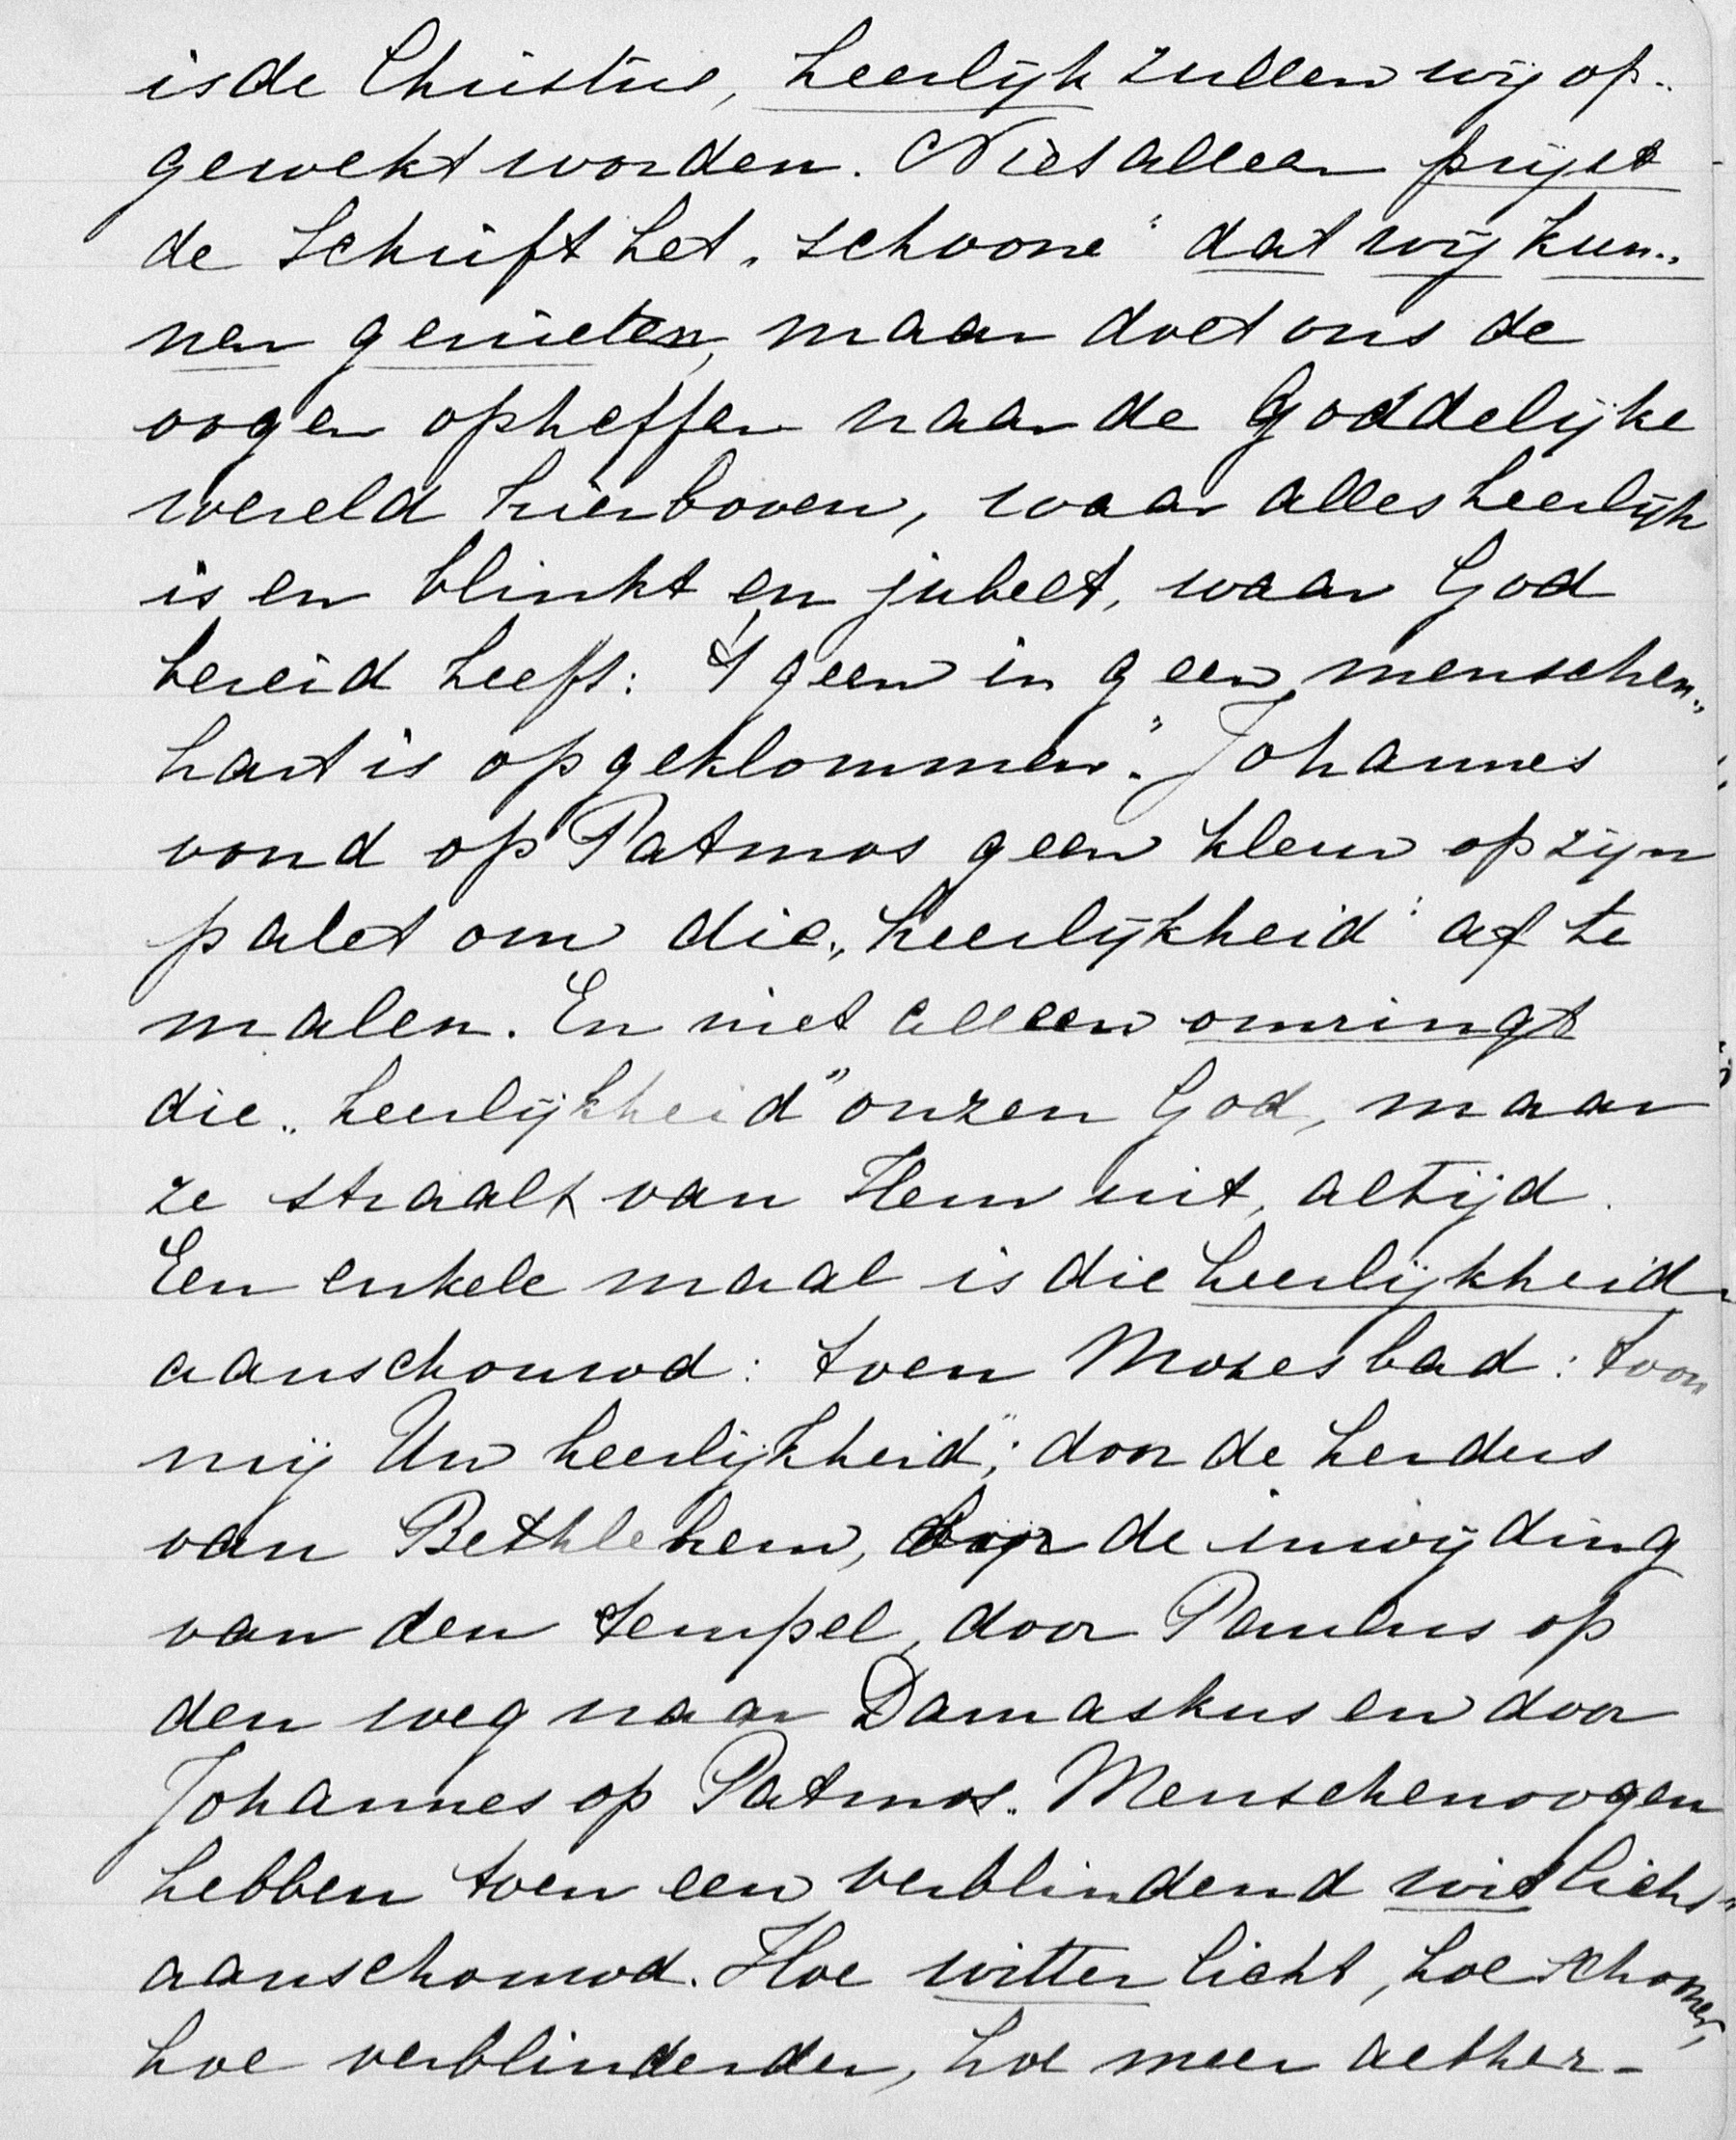 is de Christus, heerlijk zullen wij op„
gewekt worden. Niet alleen prijst
de Schrift het „schoone" dat wij kun„
nen genieten, maar doet ons de
oogen opheffen naar de Goddelijke
wereld hierboven, waar alles heerlijk
is en blinkt en jubelt, waar God
bereid heeft: 't geen in geen menschen„
hart is opgeklommen". Johannes
vond op Patmos geen kleur op zijn
palet om die „heerlijkheid" af te
malen. En niet alleen omringt
die „heerlijkheid" onzen God, maar
ze straalt van Hem uit, altijd.
Een enkele maal is die heerlijkheid
aanschouwd: toen Mozes bad: toon
mij Uw heerlijkheid"; door de herders
van Bethlehem, bij de inwijding
van den tempel, door Paulus op
den weg naar Damaskus en door
Johannes op Patmos. Menschenoogen
hebben toen een verblindend wit licht
aanschouwd. Hoe witter licht, hoe schooner,
hoe verblindender, hoe meer aether-